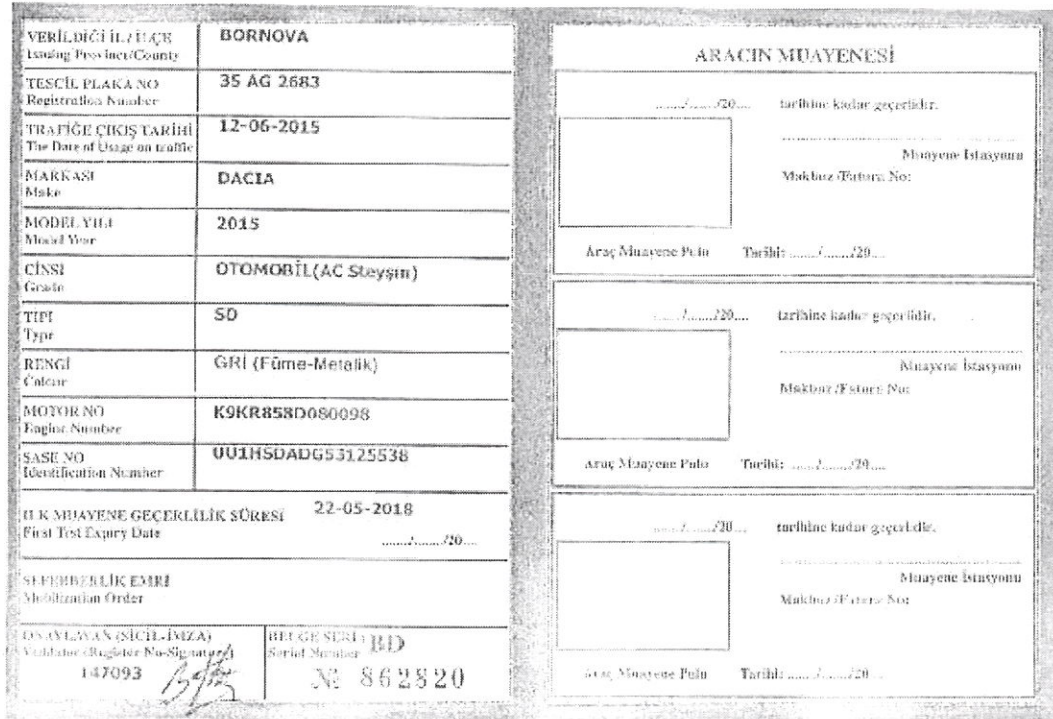 VERİLDİĞİ İL / İLÇE
Issuing Province/County
BORNOVA
TESCİL PLAKA NO
Registration Number
35 AG 2683
TRAFİĞE ÇIKIŞ TARİHİ
The Date of Usage on traffic
12-06-2015
MARKASI
Make
DACIA
MODEL YILI
Model Year
2015
CİNSİ
Grade
OTOMOBİL(AC Steyşın)
TİPİ
Type
SD
RENGİ
Colour
GRİ (Füme-Metalik)
MOTOR NO
Engine Number
K9KR858D080098
ŞASE NO
Identification Number
UU1HSDADG53125538
İLK MUAYENE GEÇERLİLİK SÜRESİ
First Test Expiry Date
22-05-2018
......./......./20....
SEFERBERLİK EMRİ
Mobilization Order
ONAYLAYAN (SİCİL-İMZA)
Validator (Register No-Signature)
147093
BELGE SERİ
Serial Number
BD
№ 862820
ARACIN MUAYENESİ
......./......./20.... tarihine kadar geçerlidir.
Muayene İstasyonu
Makbuz /Fatura No:
Araç Muayene Pulu Tarihi: ......./......./20....
......./......./20.... tarihine kadar geçerlidir.
Muayene İstasyonu
Makbuz /Fatura No:
Araç Muayene Pulu Tarihi: ......./......./20....
......./......./20.... tarihine kadar geçerlidir.
Muayene İstasyonu
Makbuz /Fatura No:
Araç Muayene Pulu Tarihi: ......./......./20....